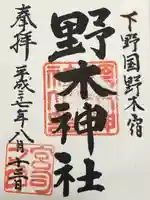 下野国野木宿
野木神社
奉拝
平成二十七年八月十三日